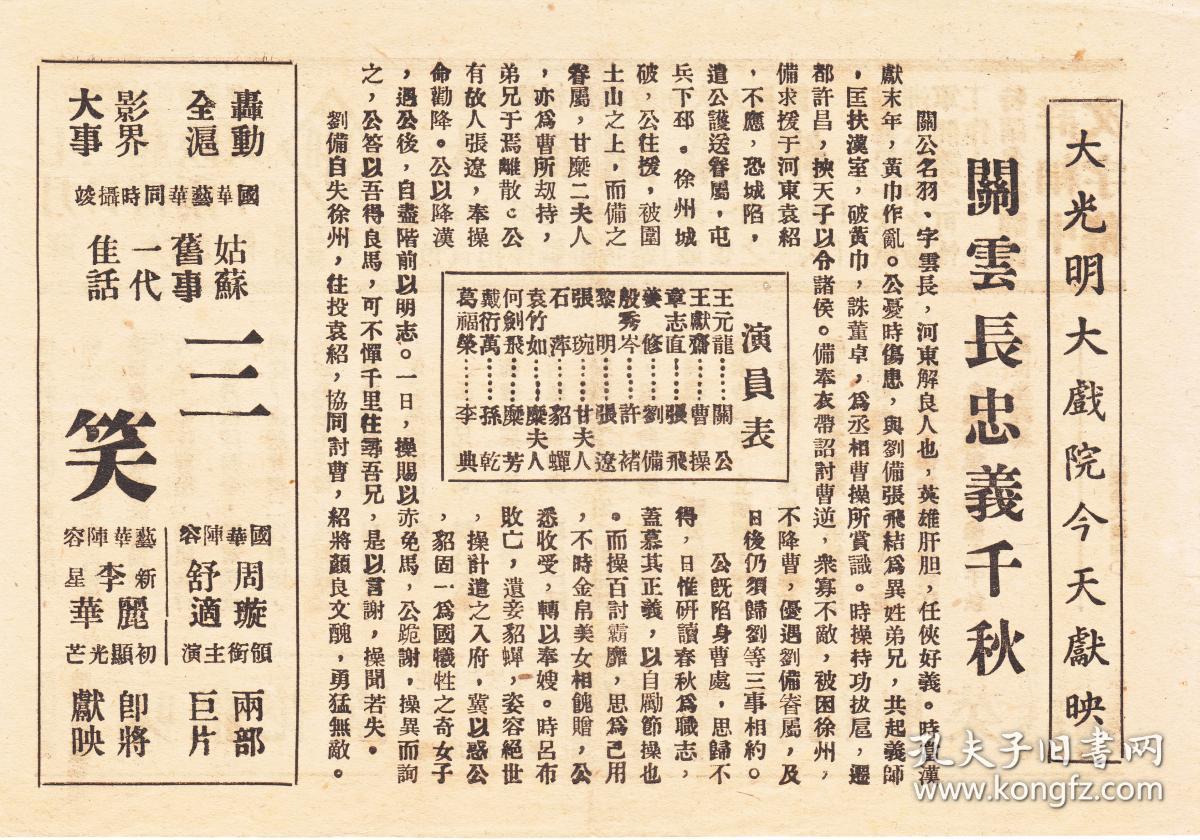 大光明大戲院今天獻映
關雲長忠義千秋
關公名羽、字雲長，河東解良人也，英雄肝胆，任俠好義。時值漢
獻末年，黃巾作亂。公憂時傷患，與劉備張飛結爲異姓弟兄，共起義師
，匡扶漢室，破黃巾，誅董卓，爲丞相曹操所賞識。時操持功拔扈，遷
都許昌，挾天子以令諸侯。備奉衣帶詔討曹逆，衆寡不敵，被困徐州，
備求援于河東袁紹
，不應，恐城陷，
遣公護送眷屬，屯
兵下邳。徐州城
破，公往援，被圍
土山之上，而備之
眷屬，甘糜二夫人
，亦爲曹所刼持，
弟兄于焉離散。公
有故人張遼，奉操
命勸降。公以降漢
演員表
王元龍……關公
王獻齋……曹操
章志直……張飛
姜修……劉備
殷秀岑……許褚
黎明……張遼
張琬……甘夫人
石萍……貂蟬
袁竹如……糜夫人
何劍飛……糜芳
戴衍萬……孫乾
葛福榮……李典
不降曹，優遇劉備眷屬，及
日後仍須歸劉等三事相約。
公既陷身曹處，思歸不
得，日惟研讀春秋爲職志，
蓋慕其正義，以自勵節操也
。而操百討霸靡，思爲己用
，不時金帛美女相餽贈，公
悉收受，轉以奉嫂。時呂布
敗亡，遺妾貂蟬，姿容絕世
，操計遣之入府，冀以惑公
，貂固一爲國犧牲之奇女子
，遇公後，自盡階前以明志。一日，操賜以赤兔馬，公跪謝，操異而詢
之，公答以吾得良馬，可不憚千里往尋吾兄，是以言謝，操聞若失。
劉備自失徐州，往投袁紹，協同討曹，紹將顏良文醜，勇猛無敵。
轟動
全滬
影界
大事
國華藝華同時攝竣
姑蘇
舊事
一代
佳話
三笑
國華陣容
周璇
舒適
領銜主演
藝華陣容
新星
李麗華
初顯光芒
兩部
巨片
即將
獻映
孔夫子旧書网
www.kongfz.com